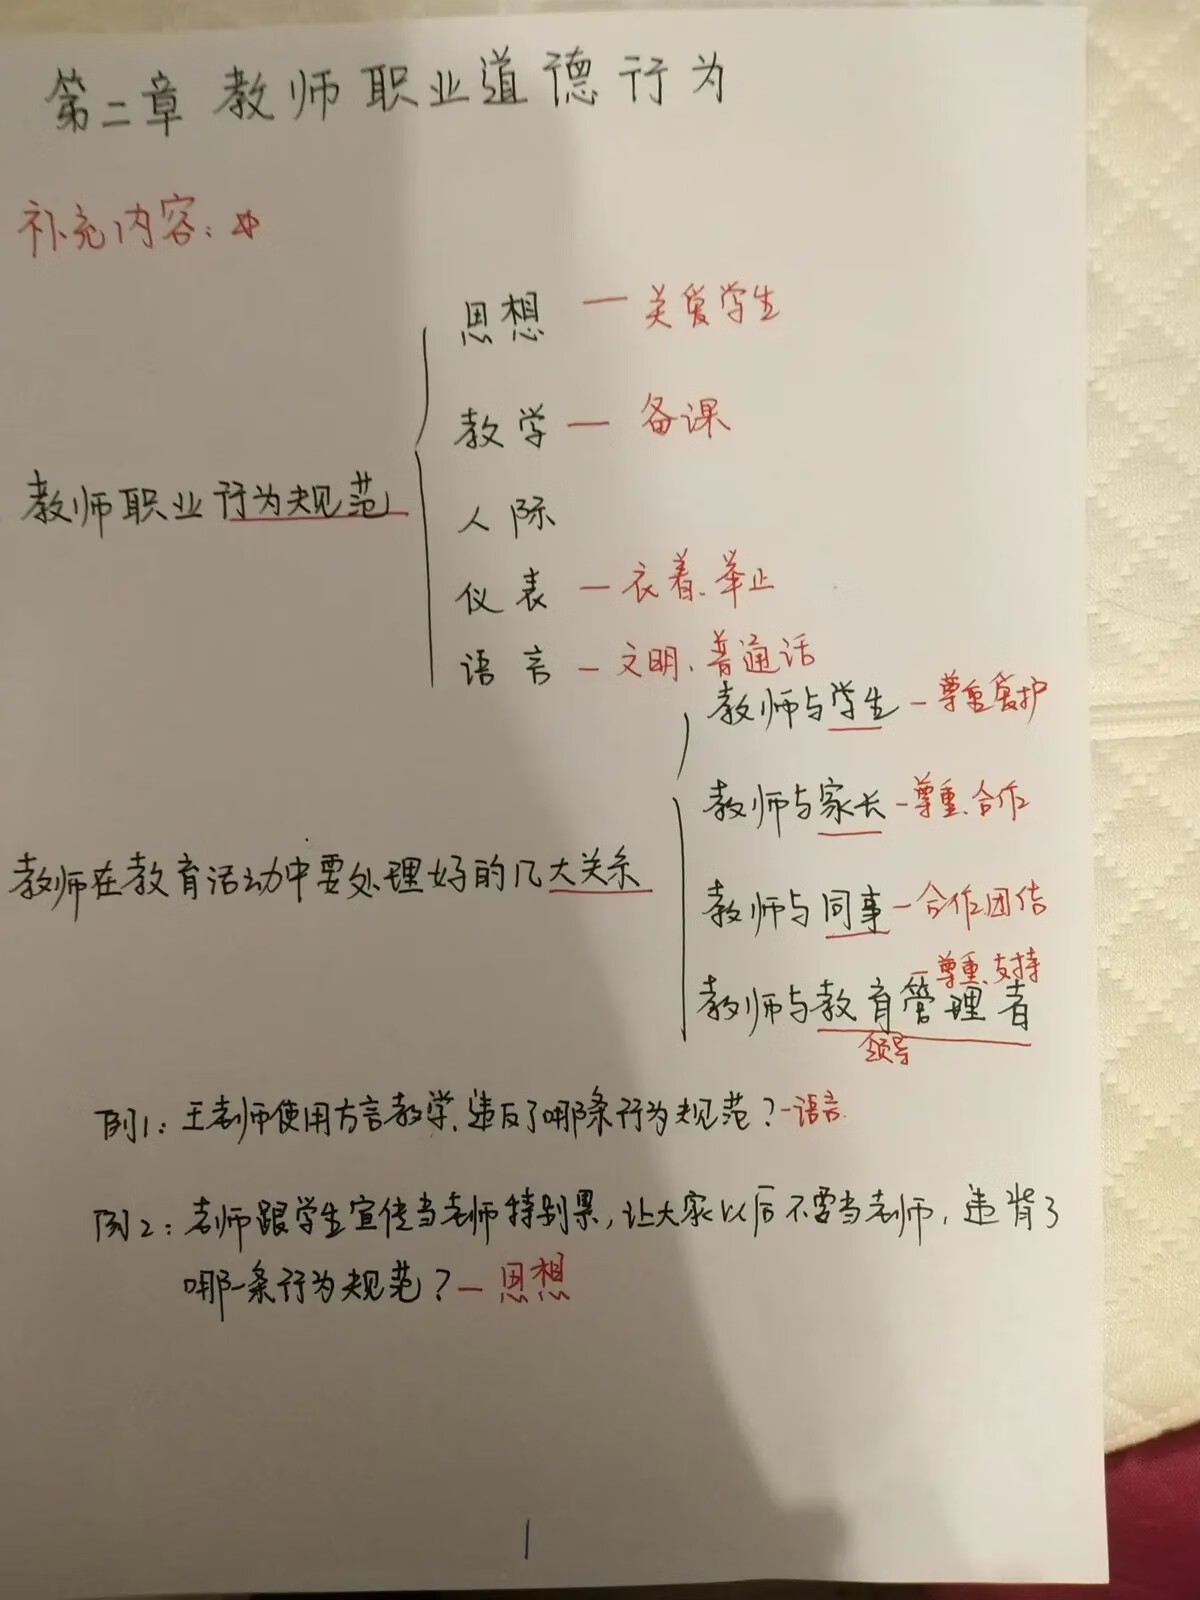 第二章 教师职业道德行为
补充内容：☆
思想 — 关爱学生
教学 — 备课
教师职业行为规范
人际
仪表 — 衣着、举止
语言 — 文明、普通话
教师与学生 — 尊重爱护
教师与家长 — 尊重、合作
教师在教育活动中要处理好的几大关系
教师与同事 — 合作团结
— 尊重、支持
教师与教育管理者
领导
例1：王老师使用方言教学，违反了哪条行为规范？— 语言
例2：老师跟学生宣传当老师特别累，让大家以后不要当老师，违背了
哪一条行为规范？— 思想
1